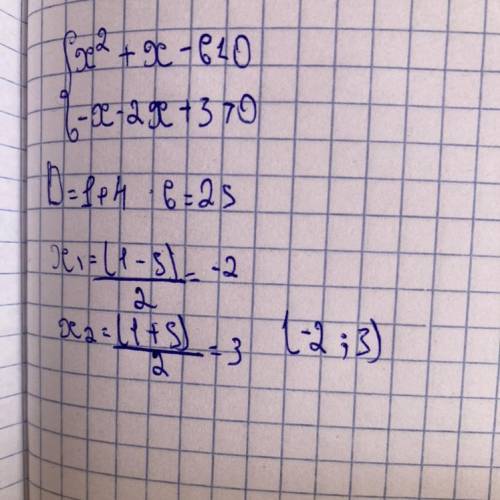 {x² + x - 6 < 0
-x - 2x + 3 > 0
D = 1 + 4 · 6 = 25
x₁ = (1 - 5) / 2 = -2
x₂ = (1 + 5) / 2 = 3 (-2 ; 3)